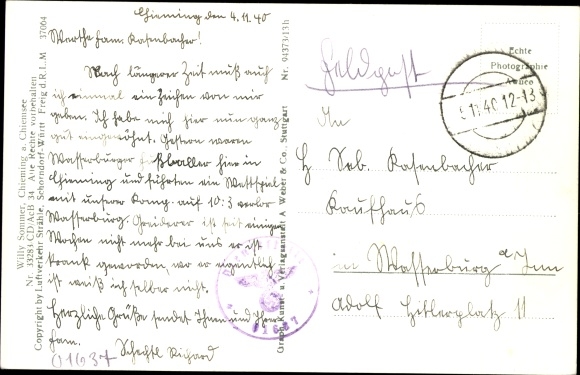 Chieming den 4.11.40
Werthe Fam. Rosenbacher!
Nach längerer Zeit muß auch
ich einmal ein Zeichen von mir
geben. Ich habe mich hier nun ganz
gut eingewöhnt. Gestern waren
Wasserburger Fußballer hier in
Chieming und führten ein Wettspiel
mit unsrer Komp. auf 10:3 verlor
Wasserburg. Greiderer ist seit einigen
Wochen nicht mehr bei uns er ist
krank geworden, wo er eigentlich
ist weiß ich selber nicht.
Herzliche Grüße sendet Ihnen und Ihrer
Fam. Schechtl Richard
01637
Willy Sommer, Chieming a. Chiemsee
Nr. 33283 CD/AcB 34 Alle Rechte vorbehalten
Copyright by Luftverkehr Strähle, Schorndorf-Württ. Freig. d. R.L.M. 37004
Graph. Kunst- u. Verlagsanstalt A. Weber & Co., Stuttgart Nr. 94373/13h
Echte
Photographie
Aweco
Feldpost
12-13
An
H Seb. Rosenbacher
Kaufhaus
in Wasserburg a/Inn
Adolf Hitlerplatz 11